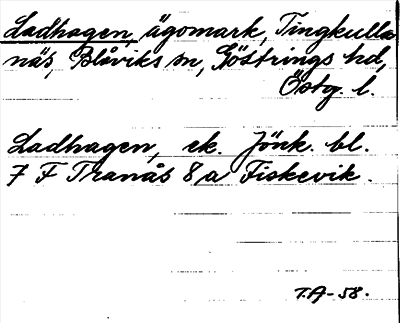 Ladhagen, ägomark, Tingkulla
näs, Blåviks sn, Göstrings hd,
Östg. l.
Ladhagen, ek. Jönk. bl.
7 F Tranås 8 a Fiskevik.
T.A-58.